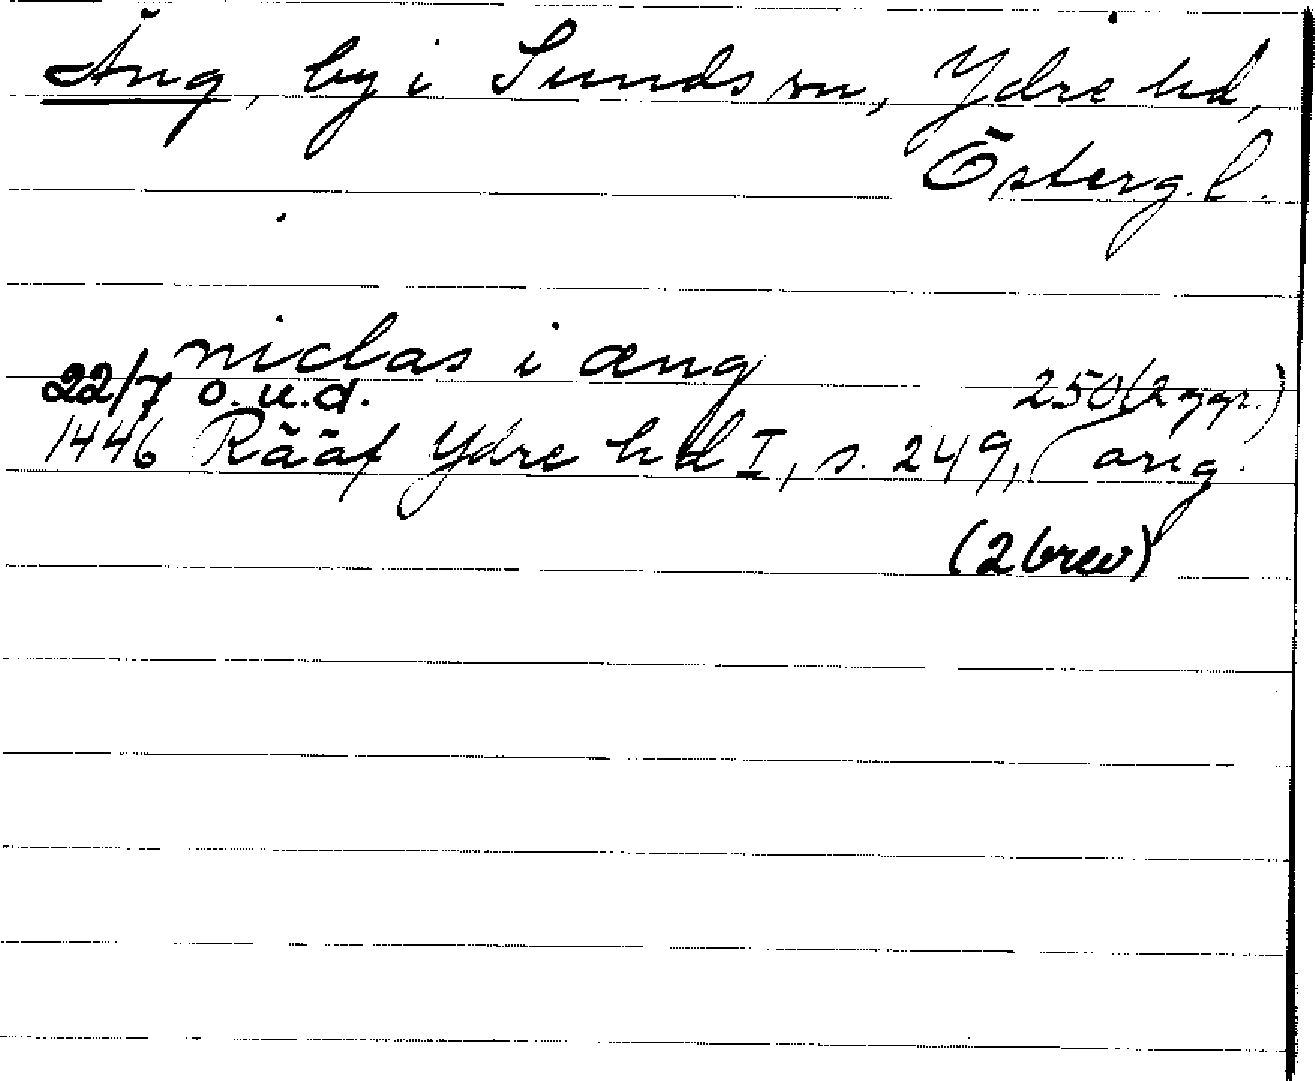 Äng, by i Sunds sn, Ydre hd,
Österg. l.
niclas i æng
22/7 o. u. d. 250 (2 ggr.)
1446 Rääf Ydre hd I, s. 249, orig.
(2 brev)